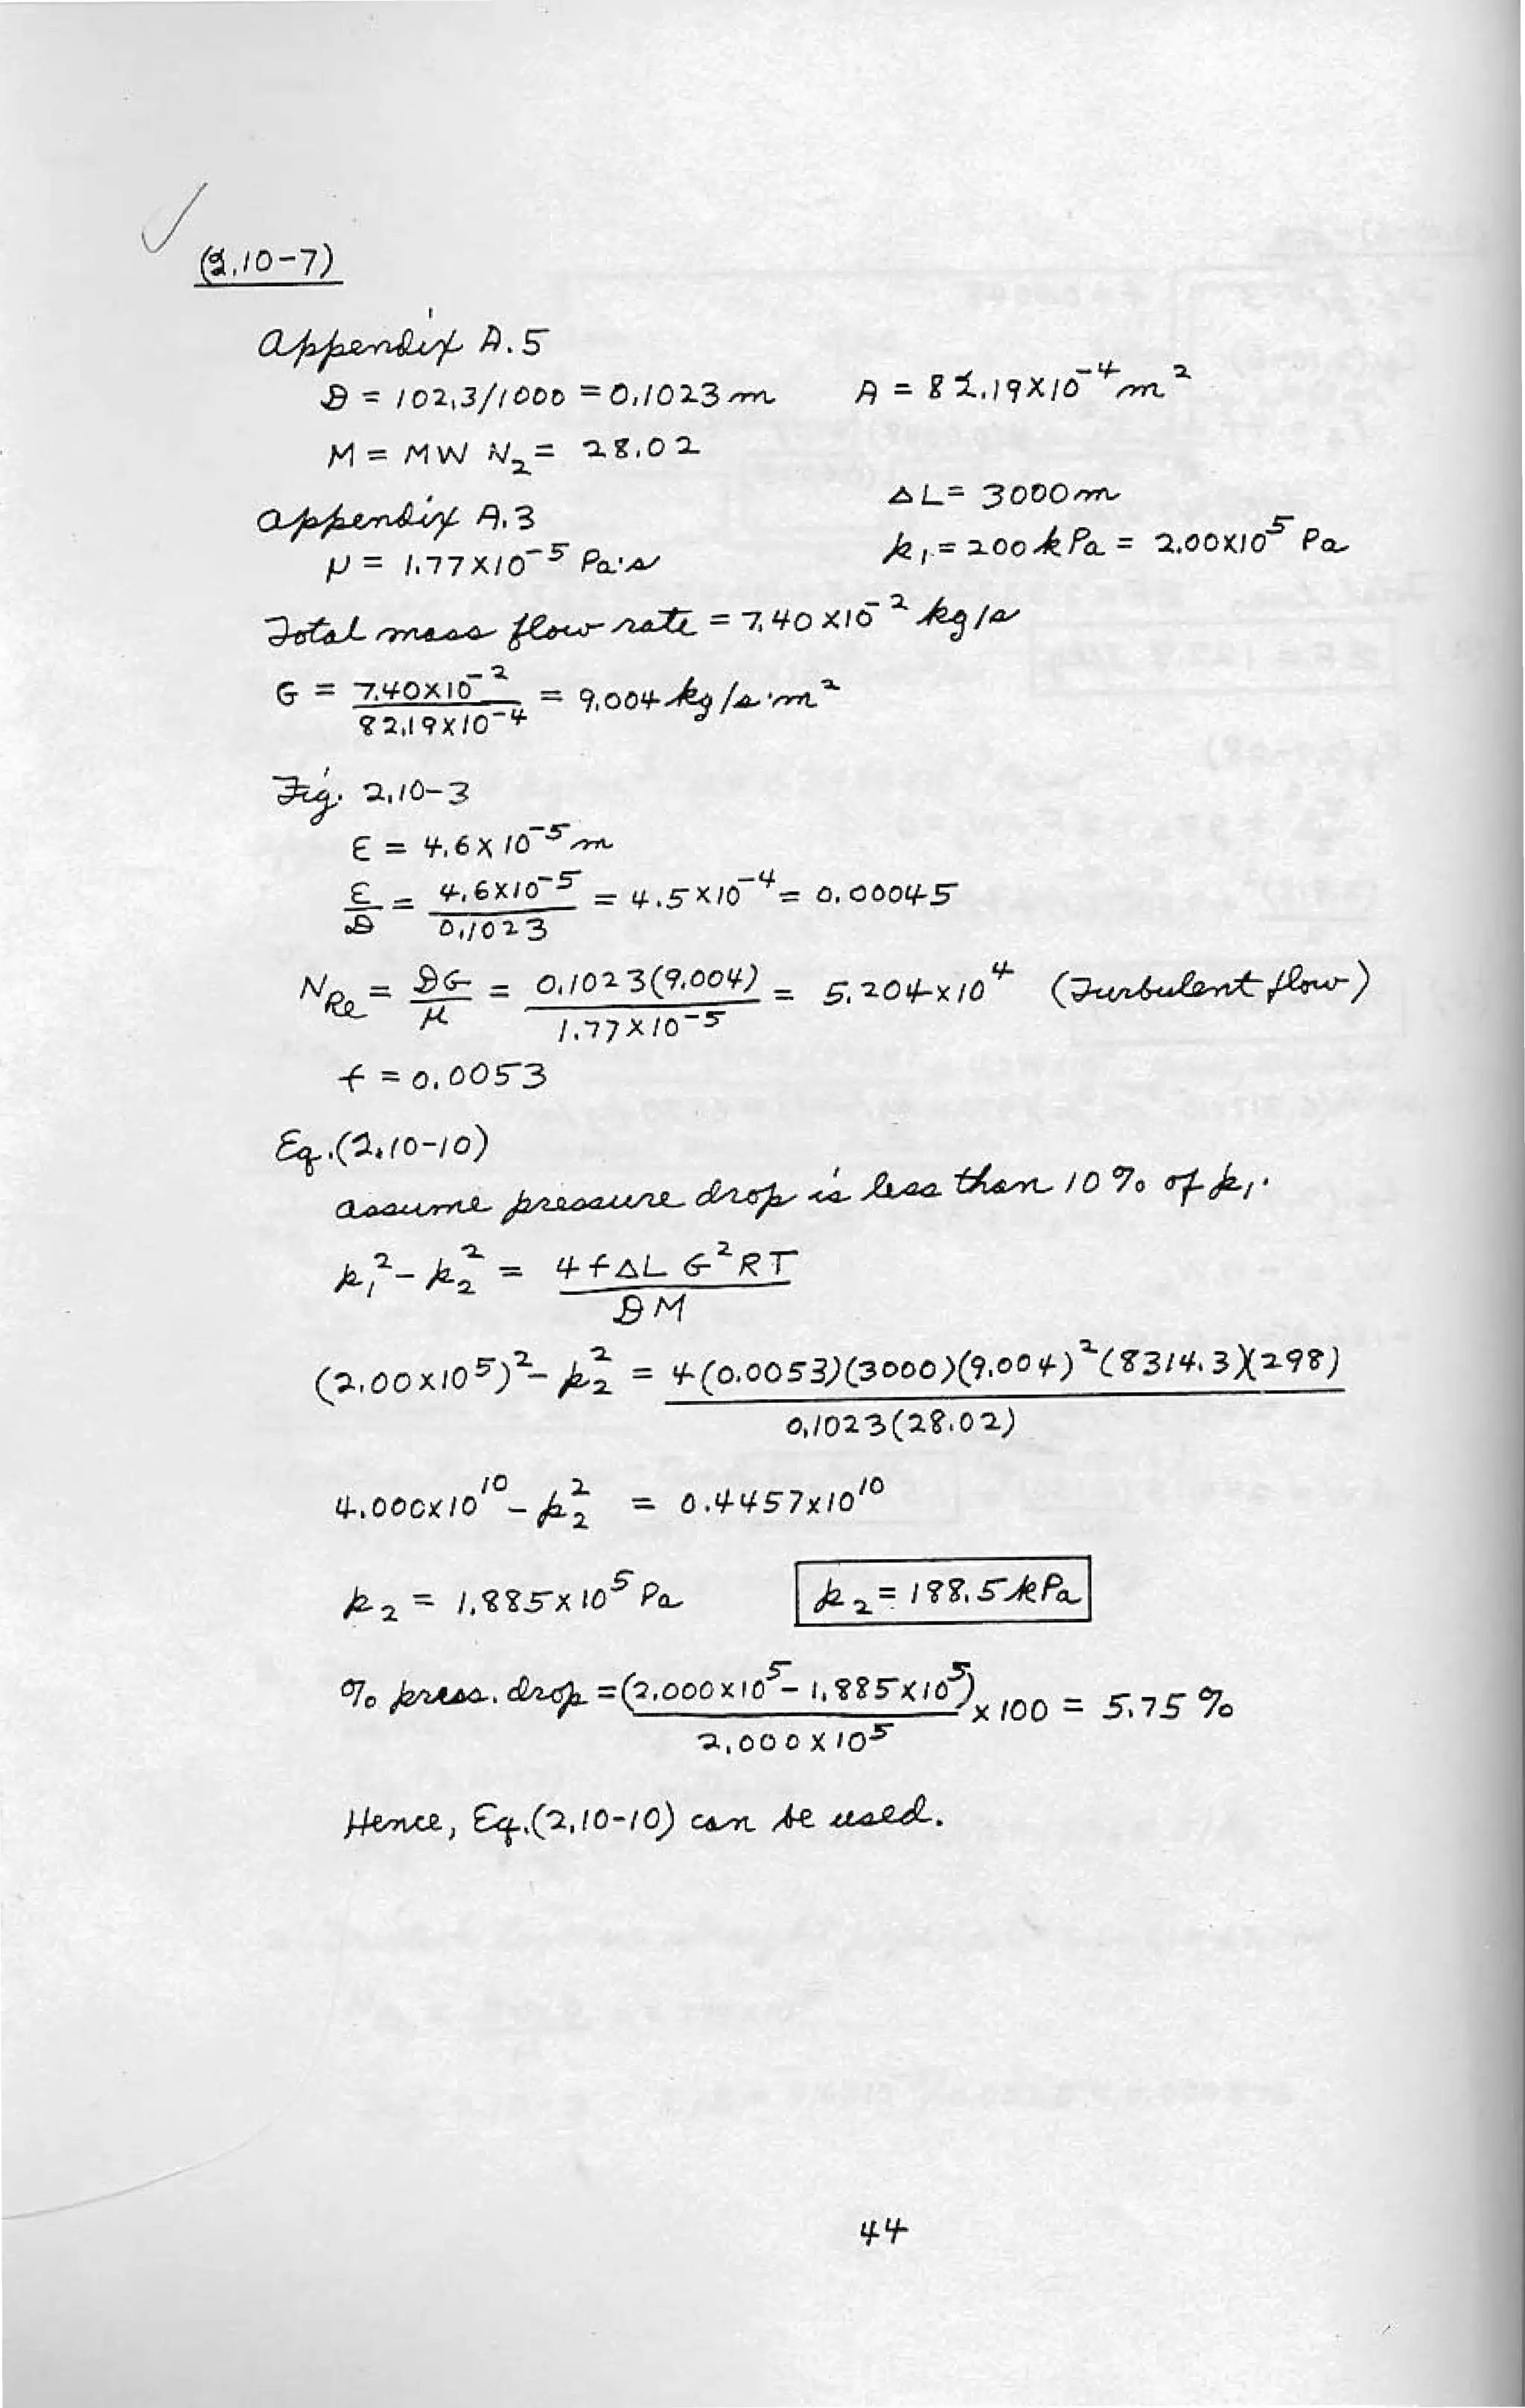 (2.10-7)
Appendix A.5
D = 102.3/1000 = 0.1023 m    A = 82.19x10^-4 m^2
M = MW N_2 = 28.02
ΔL = 3000 m
Appendix A.3
p_1 = 200 kPa = 2.00x10^5 Pa
μ = 1.77x10^-5 Pa·s
Total mass flow rate = 7.40x10^-2 kg/s
G = 7.40x10^-2 / 82.19x10^-4 = 9.004 kg/s·m^2
Fig. 2.10-3
ε = 4.6x10^-5 m
ε/D = 4.6x10^-5 / 0.1023 = 4.5x10^-4 = 0.00045
N_Re = DG/μ = 0.1023(9.004) / 1.77x10^-5 = 5.204x10^4 (Turbulent flow)
f = 0.0053
Eq.(2.10-10)
Assume pressure drop is less than 10% of p_1.
p_1^2 - p_2^2 = 4fΔL G^2RT / DM
(2.00x10^5)^2 - p_2^2 = 4(0.0053)(3000)(9.004)^2(8314.3)(298) / 0.1023(28.02)
4.000x10^10 - p_2^2 = 0.4457x10^10
p_2 = 1.885x10^5 Pa    p_2 = 188.5 kPa
% press. drop = (2.000x10^5 - 1.885x10^5) / 2.000x10^5 x 100 = 5.75 %
Hence, Eq.(2.10-10) can be used.
44